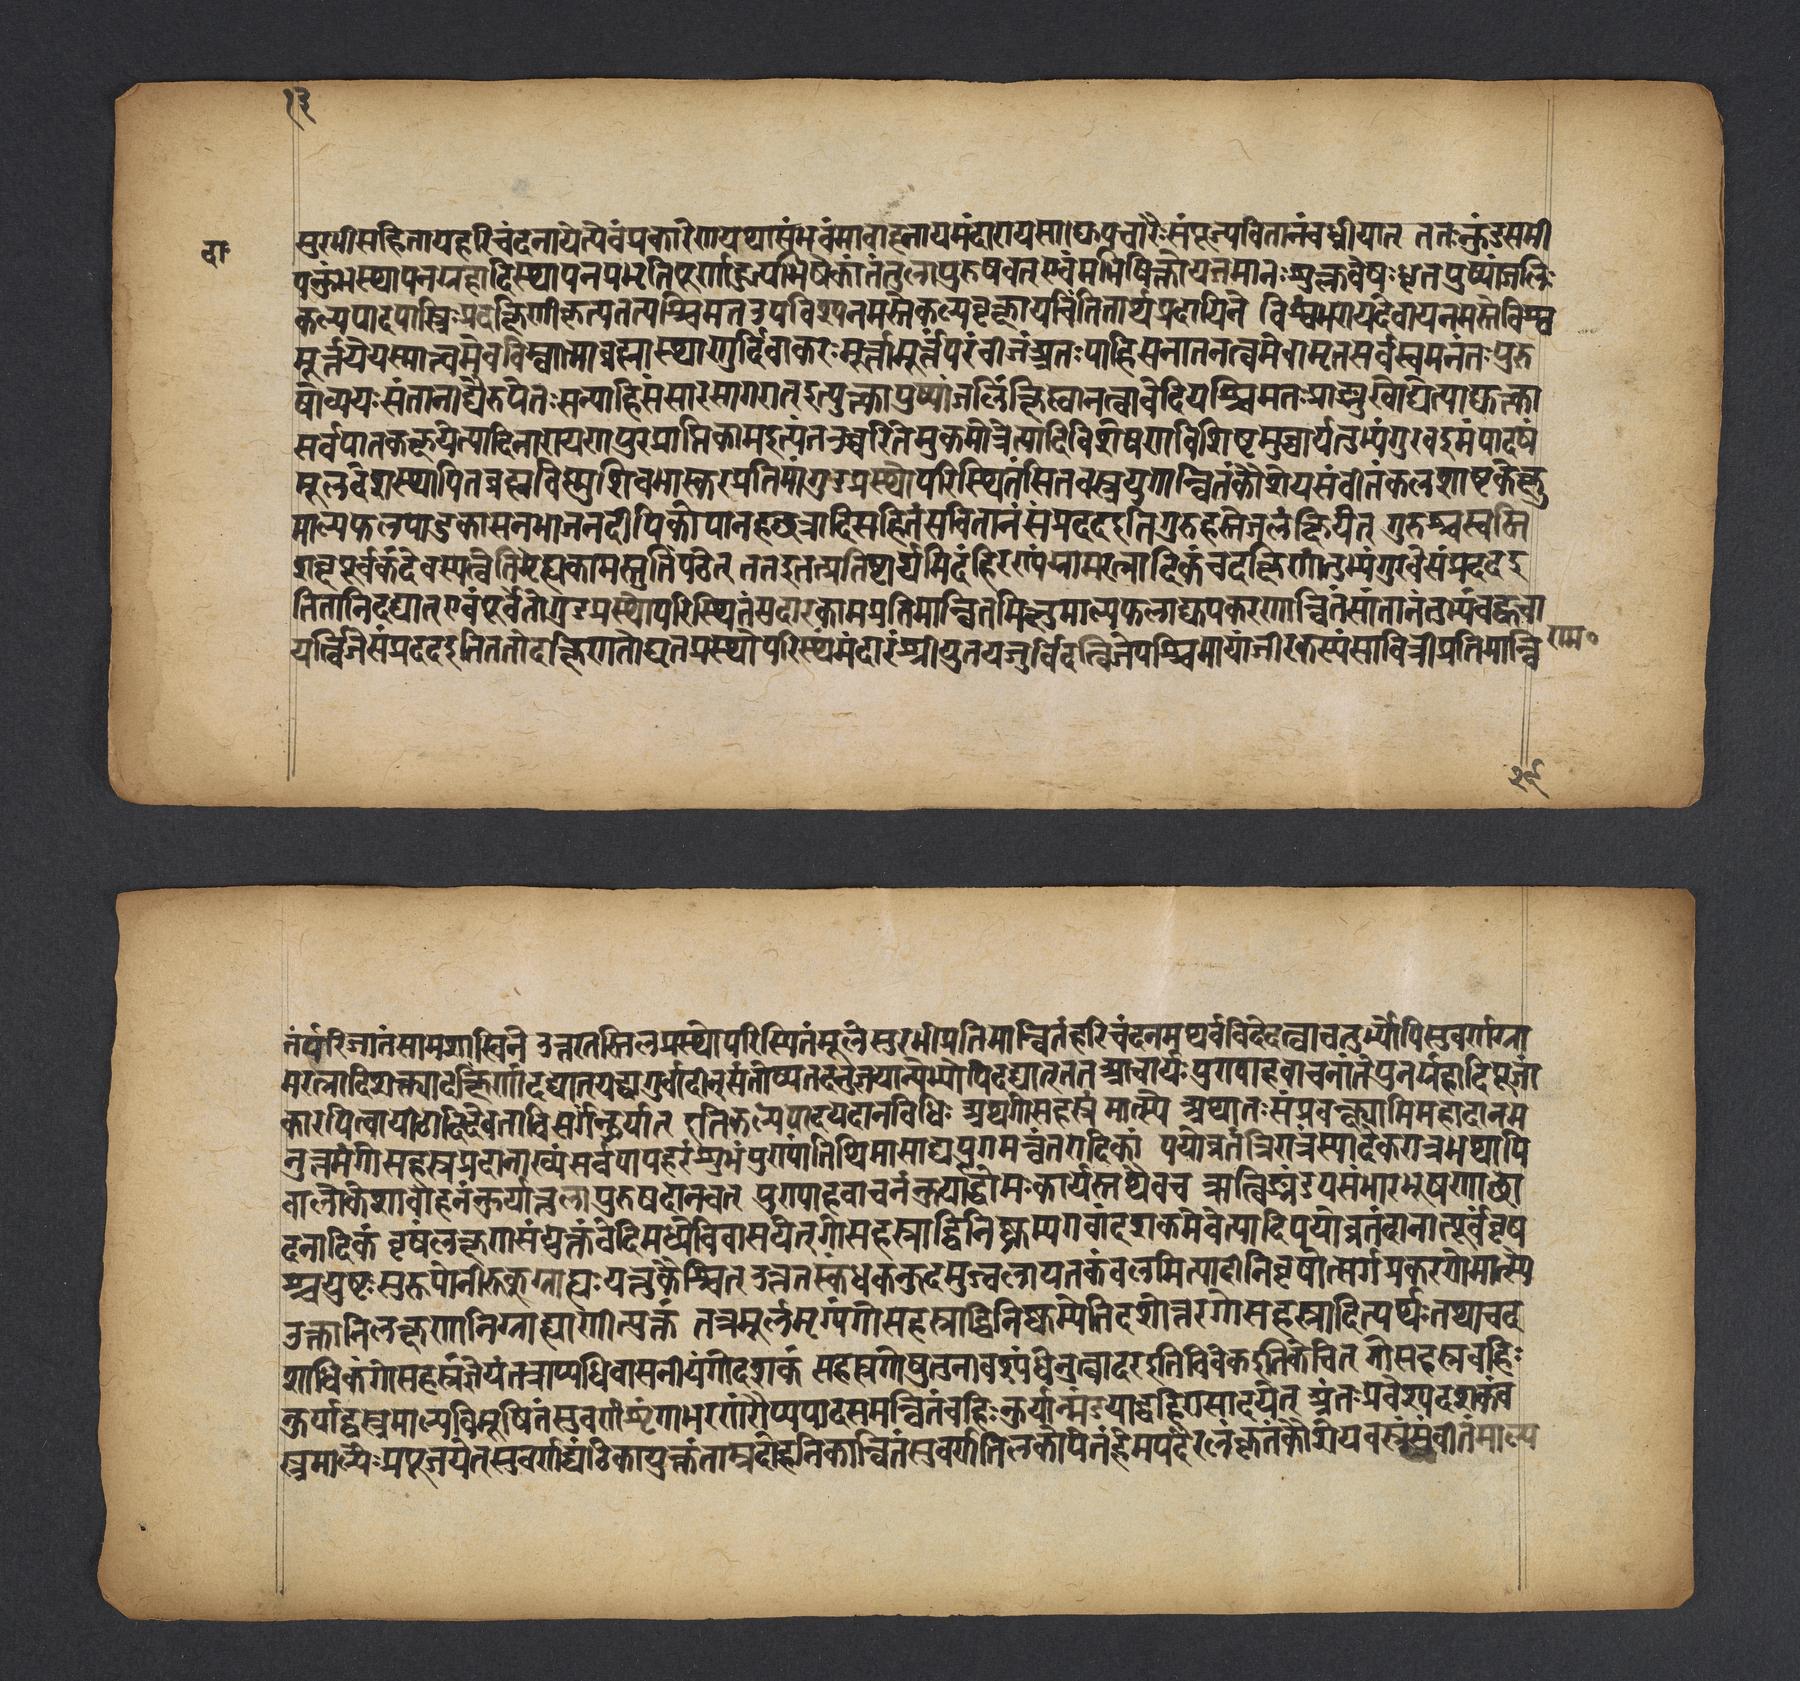 १३
सुरभीसहितायहरिचंदनायेत्येवंप्रकारेणयथासंभवंमावाहनायमंदारायसाध्यपचारैःसंपूज्यवितानंबध्नीयात् ततःकुंडसमी
दा॰
पकुंभस्थापनग्रहादिस्थापनप्रभृतिपूर्णाहुत्यभिषेकांतंतुलापुरुषवत् एवंमभिषिक्तोयजमानःशुक्लवेषःधृतपुष्पांजलिः
कल्पपादपास्त्रिःप्रदक्षिणीकृत्यतत्पश्चिमतउपविश्यनमस्तेकल्पवृक्षायचिंतितार्थप्रदायिने विश्वंभरायदेवायनमस्तेविश्व
मूर्त्तयेयस्मात्त्वमेवविश्वात्माब्रह्मास्थाणुर्दिवाकरःमूर्त्तामूर्त्तंपरंबीजंअतःपाहिसनातनत्वमेवामृतसर्वस्वमनंतःपुरु
षोव्ययःसंतानाद्यैरुपेतःसन्पाहिसंसारसागरात् इत्युक्त्वापुष्पांजलिंक्षिप्त्वानत्वावेदिपश्चिमतःप्राङ्मुखोद्येत्याद्युक्त्वा
सर्वपातकक्षयेत्यादिनारायणपुरप्राप्तिकामइत्यंतउच्चरितेमुकगोत्रेत्यादिविशेषणविशिष्टमुच्चार्यतुभ्यंगुरवइमंपादपं
मूलदेशस्थापितब्रह्मविष्णुशिवभास्करप्रतिमांगुडप्रस्थोपरिस्थितंसितवस्त्रयुगान्वितंकौशेयसंवीतंकलशाष्टकेक्षु
माल्यफलपादुकासनभाजनदीपिकोपानहछत्रादिसहितंसवितानंसंप्रददइतिगुरुहस्तेजलंक्षिपेत् गुरुश्चस्वस्ति
शब्दपूर्वकंदेवस्यत्वेतिगृह्यकामस्तुतिंपठेत् ततइतत्प्रतिष्ठार्थमिदंहिरण्यंग्रामरत्नादिकंचदक्षिणांतुभ्यंगुरवेसंप्रददइ
तितानिदद्यात् एवंपूर्वतोगुडप्रस्थोपरिस्थितंसदारकामप्रतिमान्वितमिक्षुमाल्यफलाद्युपकरणान्वितंसंतानंतुभ्यंबह्वृचा
यर्त्विजेसंप्रददइतिततोदक्षिणतोघृतप्रस्थोपरिस्थंमंदारंश्रीयुतयजुर्विदेत्विजेपश्चिमायांजीरकस्थंसावित्रीप्रतिमान्वि
राम॰
२९
तंपारिजातंसामशाखिने उत्तरतस्तिलप्रस्थोपरिस्थितंमूलेसुरभीप्रतिमान्वितंहरिचंदनमथर्वविदेदत्वाचतुर्भ्योपिसुवर्णग्रा
मरत्नादिशक्त्यादक्षिणांदद्यात् यद्वागुर्वादीन्संतोष्यतदनुज्ञयान्येभ्योपिदद्यात् ततआचार्यःपुण्याहवाचनांतेपुनर्ग्रहादिपूजां
कारयित्वापीठादिदेवताविसर्गंकुर्यात् इतिकल्पपादपदानविधिः अथगोसहस्रं मात्स्ये अथातःसंप्रवक्ष्यामिमहादानम
नुत्तमंगोसहस्रप्रदानाख्यंसर्वपापहरंशुभंपुण्यांतिथिमासाद्ययुगमन्वंतरादिकां पयोव्रतंत्रिरात्रंस्यादेकरात्रमथापि
वालोकेशावाहनंकुर्यात्तुलापुरुषदानवत् पुण्याहवाचनंकुर्याद्धोमःकार्यस्तथैवच ऋत्विङ्मंडपसंभारभूषणाच्छा
दनादिकं वृषंलक्षणसंयुक्तंवेदिमध्येधिवासयेत् गोसहस्राद्विनिष्क्रम्यगवांदशकमेवेत्यादिपयोव्रतंदानात्पूर्वंवृष
श्चपुष्टःसुरूपोनीरुक्ग्राह्यःयत्तुकैश्चित् उन्नतस्कंधककुदमुज्वलायतकंबलमित्यादीनिवृषोत्सर्गप्रकरणेमात्स्ये
उक्तानिलक्षणानिग्राह्याणीत्युक्तं तत्रमूलंमृग्यंगोसहस्राद्विनिष्क्रम्येतिदशोत्तरगोसहस्रादित्यर्थःतथाचद
शाधिकंगोसहस्रंज्ञेयंतत्राप्यधिवासनीयंगोदशकं सहस्रगोषुतुनावश्यंधेनुत्वादरइतिविवेकइतिकेचित् गोसहस्रबहिः
कुर्याद्वस्त्रमाल्यविभूषितंसुवर्णशृंगाभरणंरौप्यपादसमन्वितंबहिःकुर्यान्मंडपाद्बहिरासादयेत् अंतःप्रवेश्यदशकंव
स्त्रमाल्यैःप्रपूजयेत् सुवर्णघंटिकायुक्तंताम्रदोहनिकान्वितंसुवर्णतिलकोपेतंहेमपट्टैरलंकृतंकौशेयवस्त्रसंवीतंमाल्य